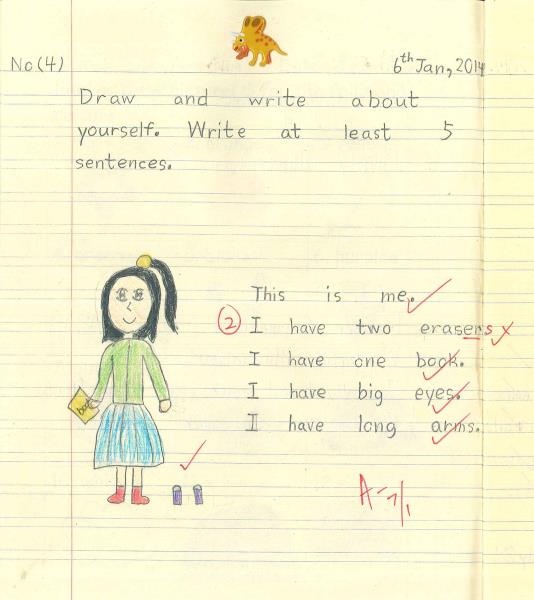 No (4)
6th Jan, 2014
Draw and write about
yourself. Write at least 5
sentences.
This is me.
② I have two erasers
I have one book.
book
I have big eyes.
I have long arms.
A- 7/1